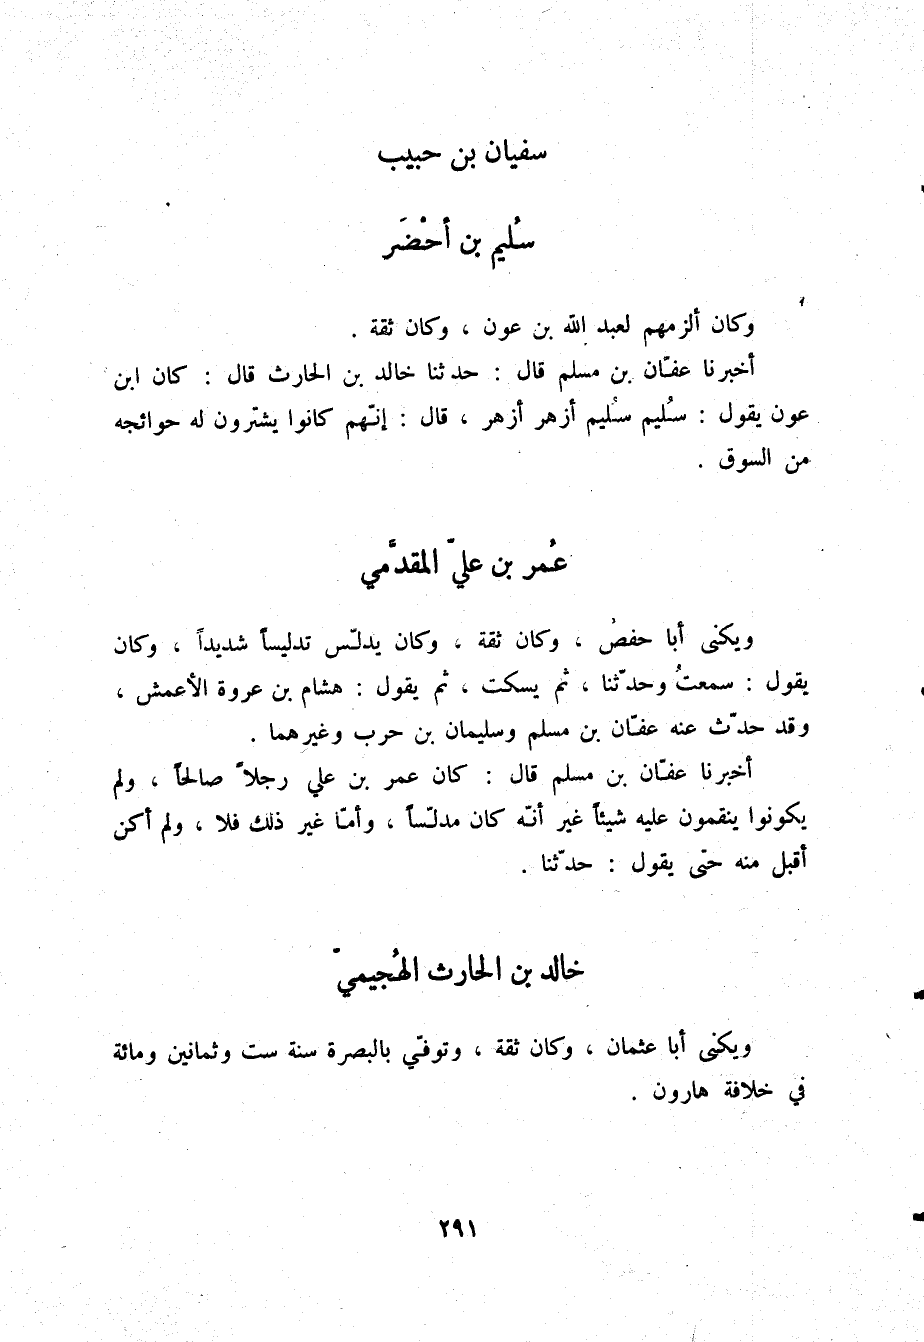 سفيان بن حبيب
سُليم بن أحْضَر
وكان ألزمهم لعبد الله بن عون ، وكان ثقة .
أخبرنا عفّان بن مسلم قال : حدثنا خالد بن الحارث قال : كان ابن
عون يقول : سُليم سُليم أزهر أزهر ، قال : إنّهم كانوا يشترون له حوائجه
من السوق .
عُمر بن عليّ المقدَّمي
ويكنى أبا حفص ، وكان ثقة ، وكان يدلّس تدليساً شديداً ، وكان
يقول : سمعتُ وحدّثنا ، ثم يسكت ، ثم يقول : هشام بن عروة الأعمش ،
وقد حدّث عنه عفّان بن مسلم وسليمان بن حرب وغيرهما .
أخبرنا عفّان بن مسلم قال : كان عمر بن علي رجلاً صالحاً ، ولم
يكونوا ينقمون عليه شيئاً غير أنّه كان مدلّساً ، وأمّا غير ذلك فلا ، ولم أكن
أقبل منه حتّى يقول : حدّثنا .
خالد بن الحارث الهُجيميّ
ويكنى أبا عثمان ، وكان ثقة ، وتوفّي بالبصرة سنة ست وثمانين ومائة
في خلافة هارون .
٢٩١